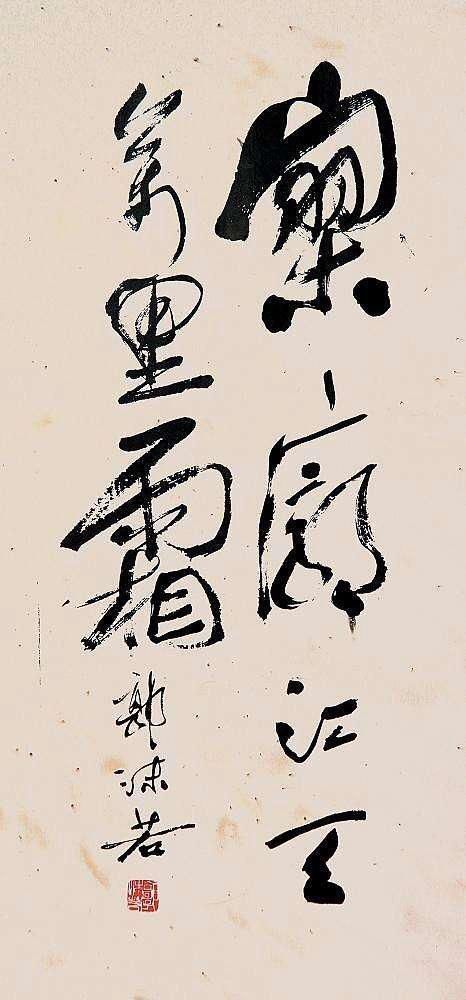 寥廓江天
萬里霜
郭沫若